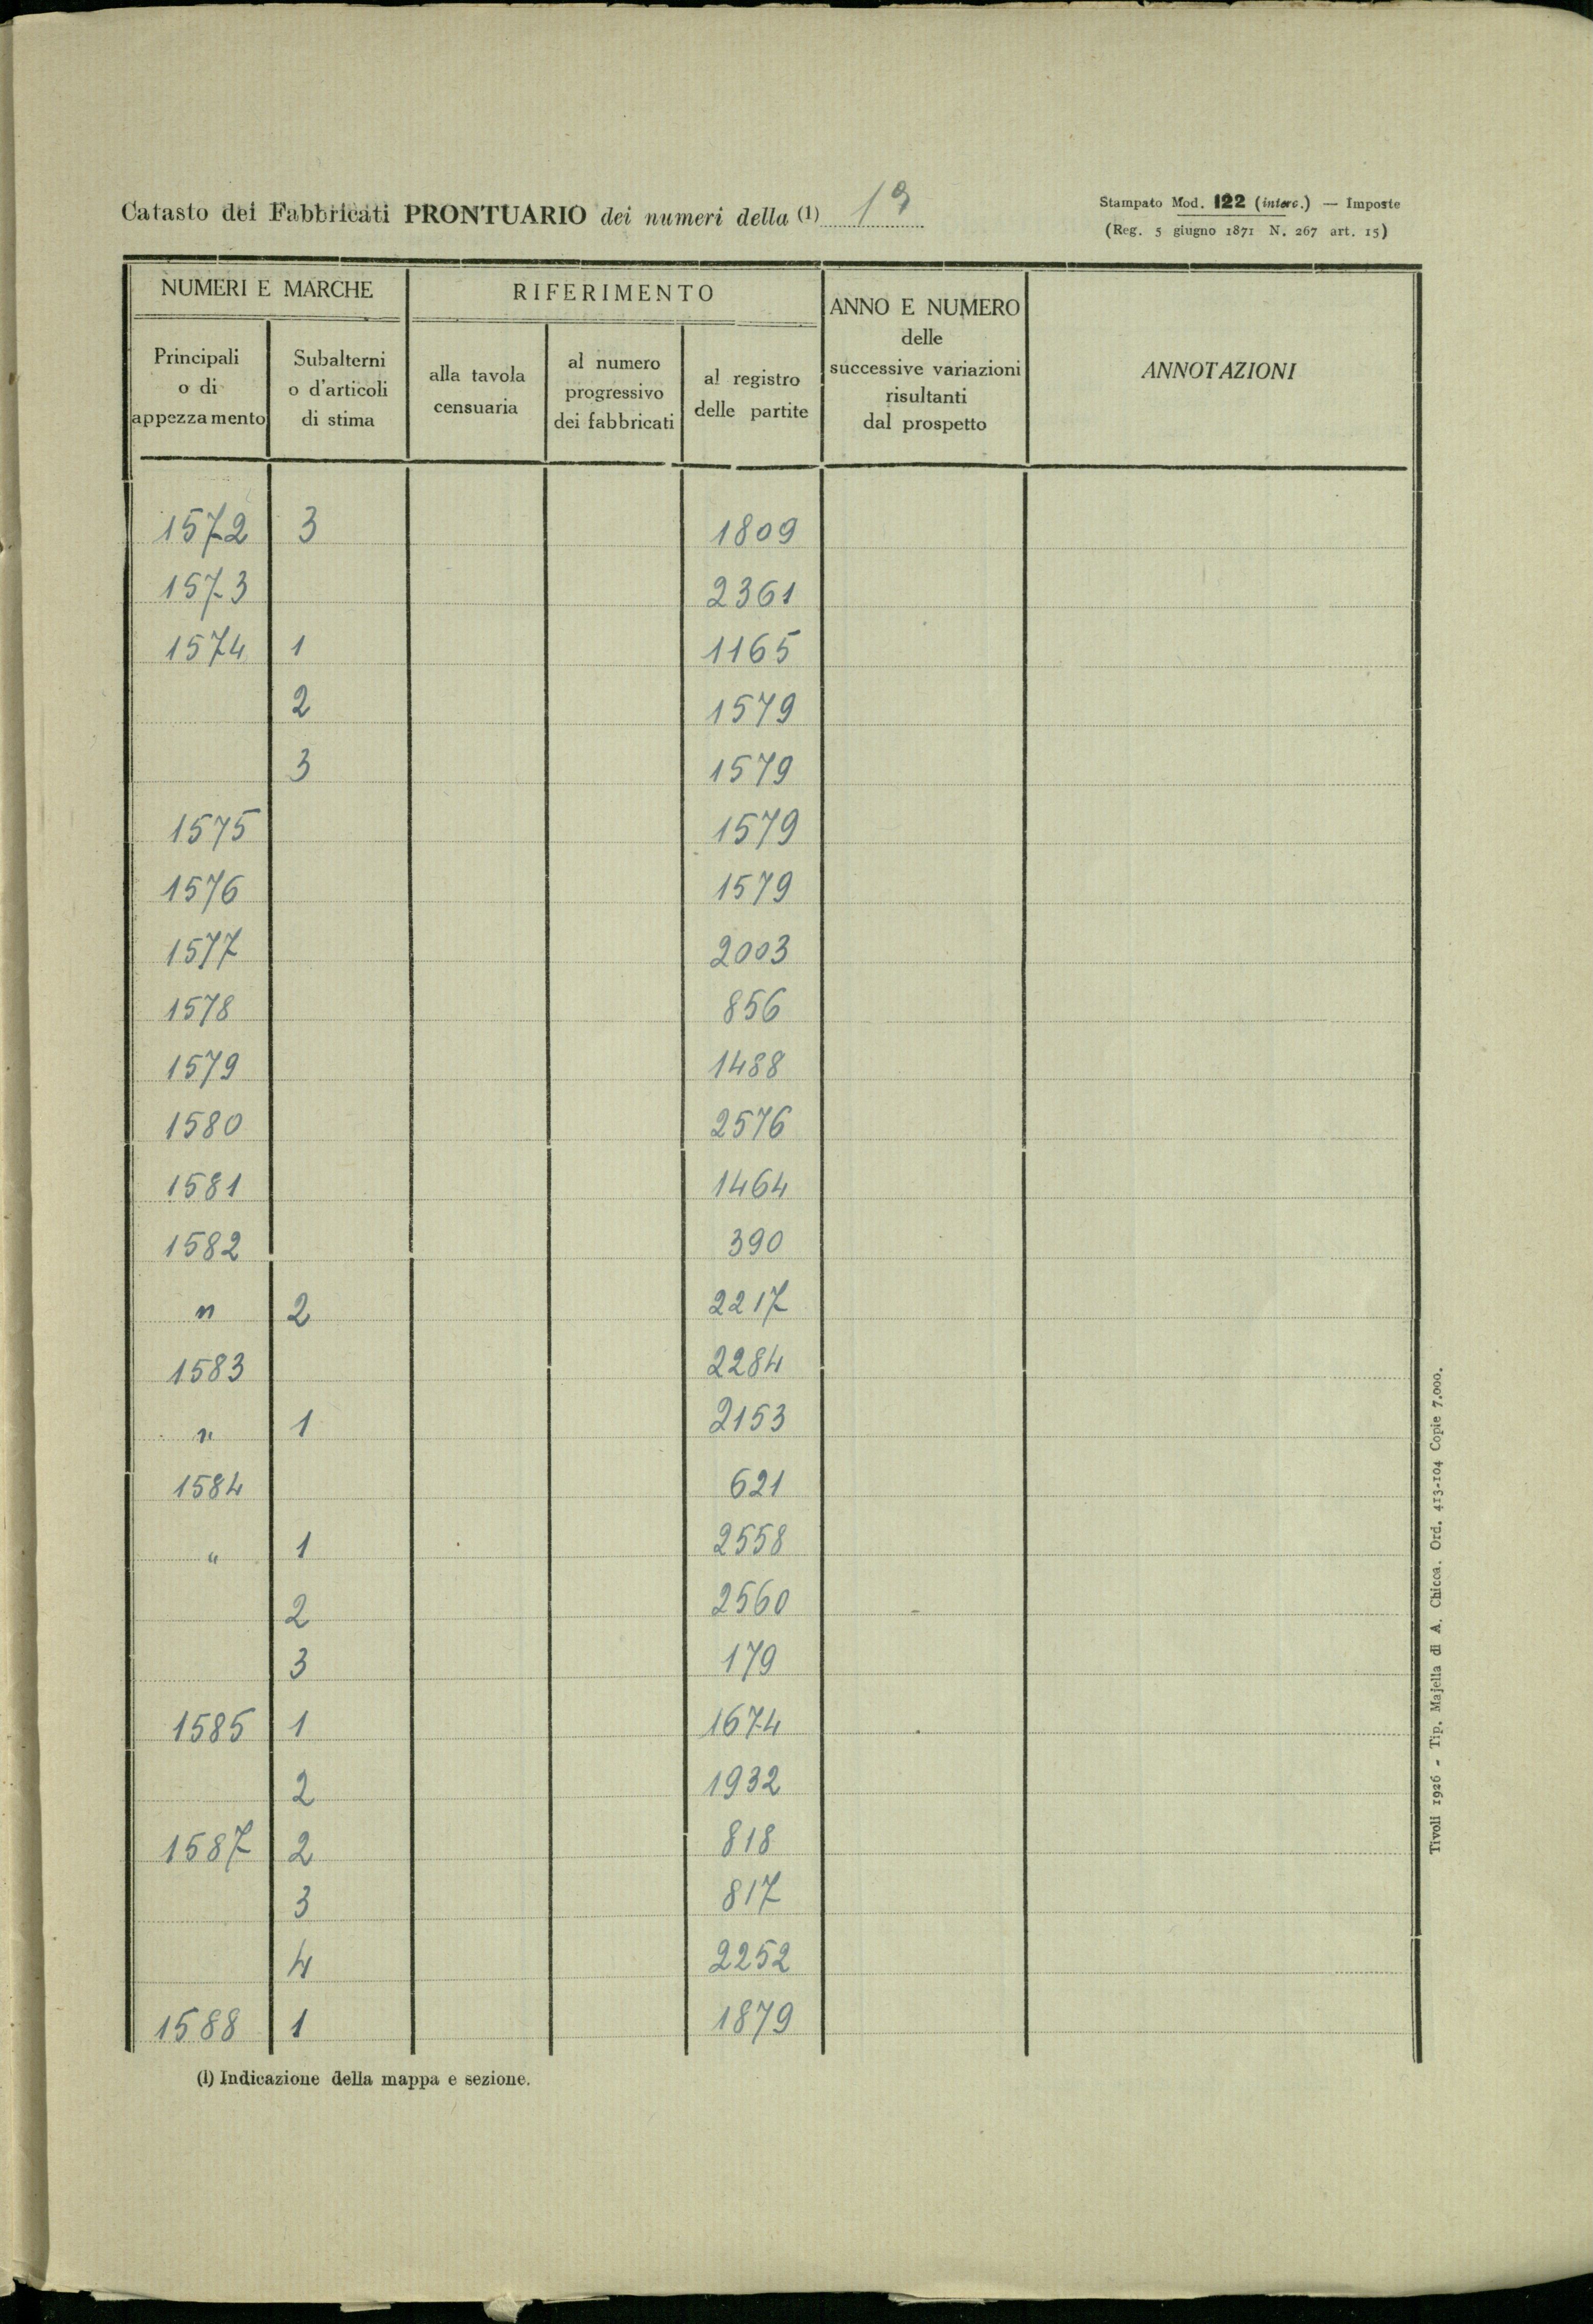 Catasto dei Fabbricati PRONTUARIO dei numeri della (1) 19
Stampato Mod. 122 (interc.) — Imposte
(Reg. 5 giugno 1871 N. 267 art. 15)
NUMERI E MARCHE
RIFERIMENTO
ANNO E NUMERO
delle
successive variazioni
risultanti
dal prospetto
ANNOTAZIONI
Principali
o di
appezzamento
Subalterni
o d'articoli
di stima
alla tavola
censuaria
al numero
progressivo
dei fabbricati
al registro
delle partite
1572 3 1809
1573 2361
1574 1 1165
2 1579
3 1579
1575 1579
1576 1579
1577 2003
1578 856
1579 1488
1580 2576
1581 1464
1582 390
" 2 2217
1583 2284
" 1 2153
1584 621
" 1 2558
2 2560
3 179
1585 1 1674
2 1932
1587 2 818
3 817
4 2252
1588 1 1879
(1) Indicazione della mappa e sezione.
Tivoli 1926 - Tip. Majella di A. Chicca. Ord. 413-104 Copie 7.000.